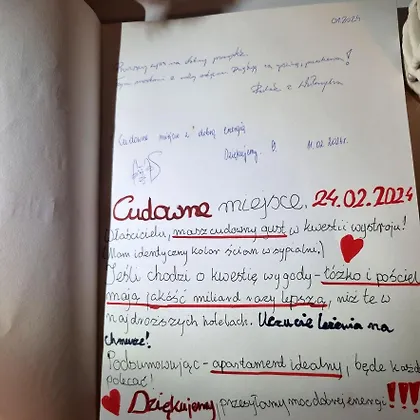 01.2024
Cudowne miejsce z dobrą energią
Dziękujemy B. 11.02.2024r.
Cudowne miejsce. 24.02.2024
Właścicielu, masz cudowny gust w kwestii wystroju!
(Mam identyczny kolor ścian w sypialni.)
Jeśli chodzi o kwestię wygody - łóżko i pościel
mają jakość miliard razy lepszą, niż te w
najdroższych hotelach. Uczucie leżenia na
chmurze!
Podsumowując - apartament idealny, będę każd
polecać!
Dziękujemy przesyłamy moc dobrej energii!!!